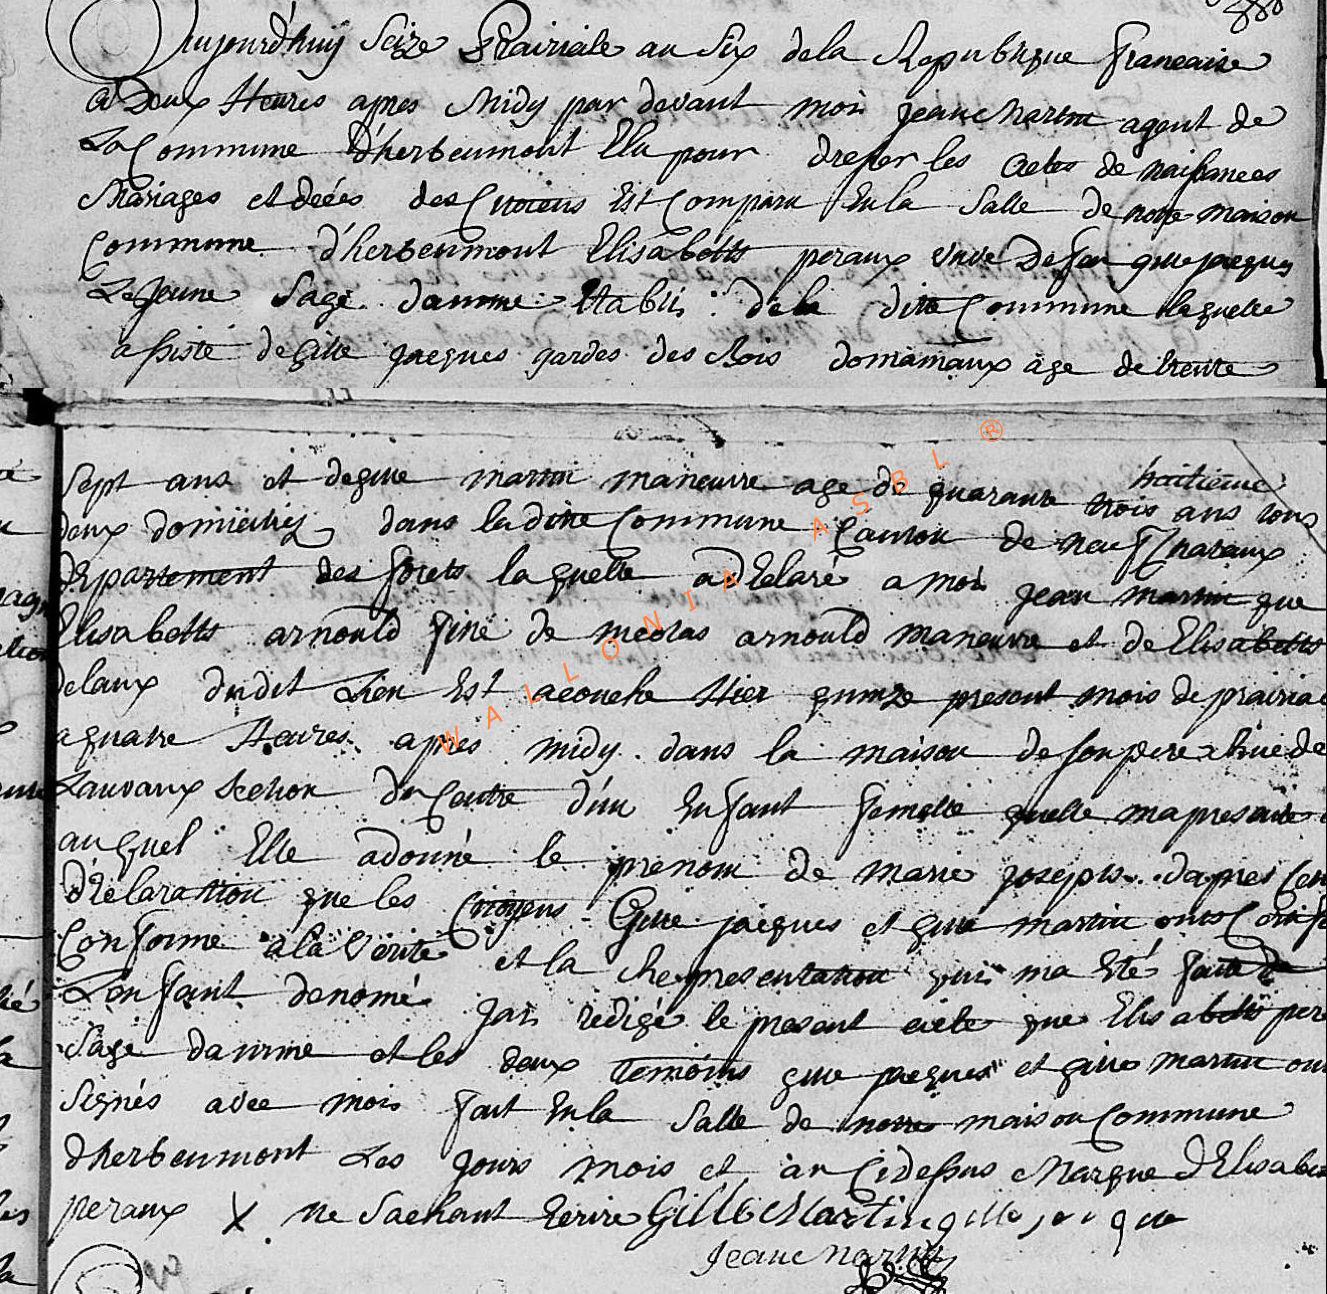 Aujourd'huy Seize Prairiale an Six de la Republique francaise
a Deux Heures apres Midy par devant moi jean Martin agent de
La Commune d'herbeumont Elu pour dresser les actes de naissances
Mariages et decés des Citoiens Est Comparu En la Salle de notre maison
Commune d'herbeumont Elisabetts peraux veuve De feu jacques
Le jeune Sage damme Etabli de la ditte Commune laquelle
assisté de Gille jacques gardes des Bois domaniaux age de trente
Sept ans et de gille martin maneuvre age de quarante huitieme trois ans tous
deux domiciliez dans la ditte Commune Canton de neufChataux
departement des forets laquelle a declaré a moi jean martin que
Elisabetts arnould fille de nicolas arnould maneuvre et de Elisabetts
delaux du dit Lieu Est acouché Hier quinze present mois de prairial
a quatre Heures apres midy dans la maison de son pere de
Lauvaux Section du Centre d'un Enfant femelle quelle ma presenté
auquel Elle a donné le prenom de marie joseph d'apres
declaration que les Citoyens Gille jacques et gille martin onts
Conforme a la verité et la Representation qui ma Eté faitte de
L'enfant denomé jai redigé le present acte que Elisabetts
Sage damme et les deux temoins gille jacques et gille martin
Signés avec moi fait En la Salle de notre maison Commune
d'herbeumont Les jours mois et an Cidessus Marque d'Elisabetts
peraux X ne Sachant Ecrire Gille Martin gille jaque
Jean Martin
WALLONIA ASBL ®